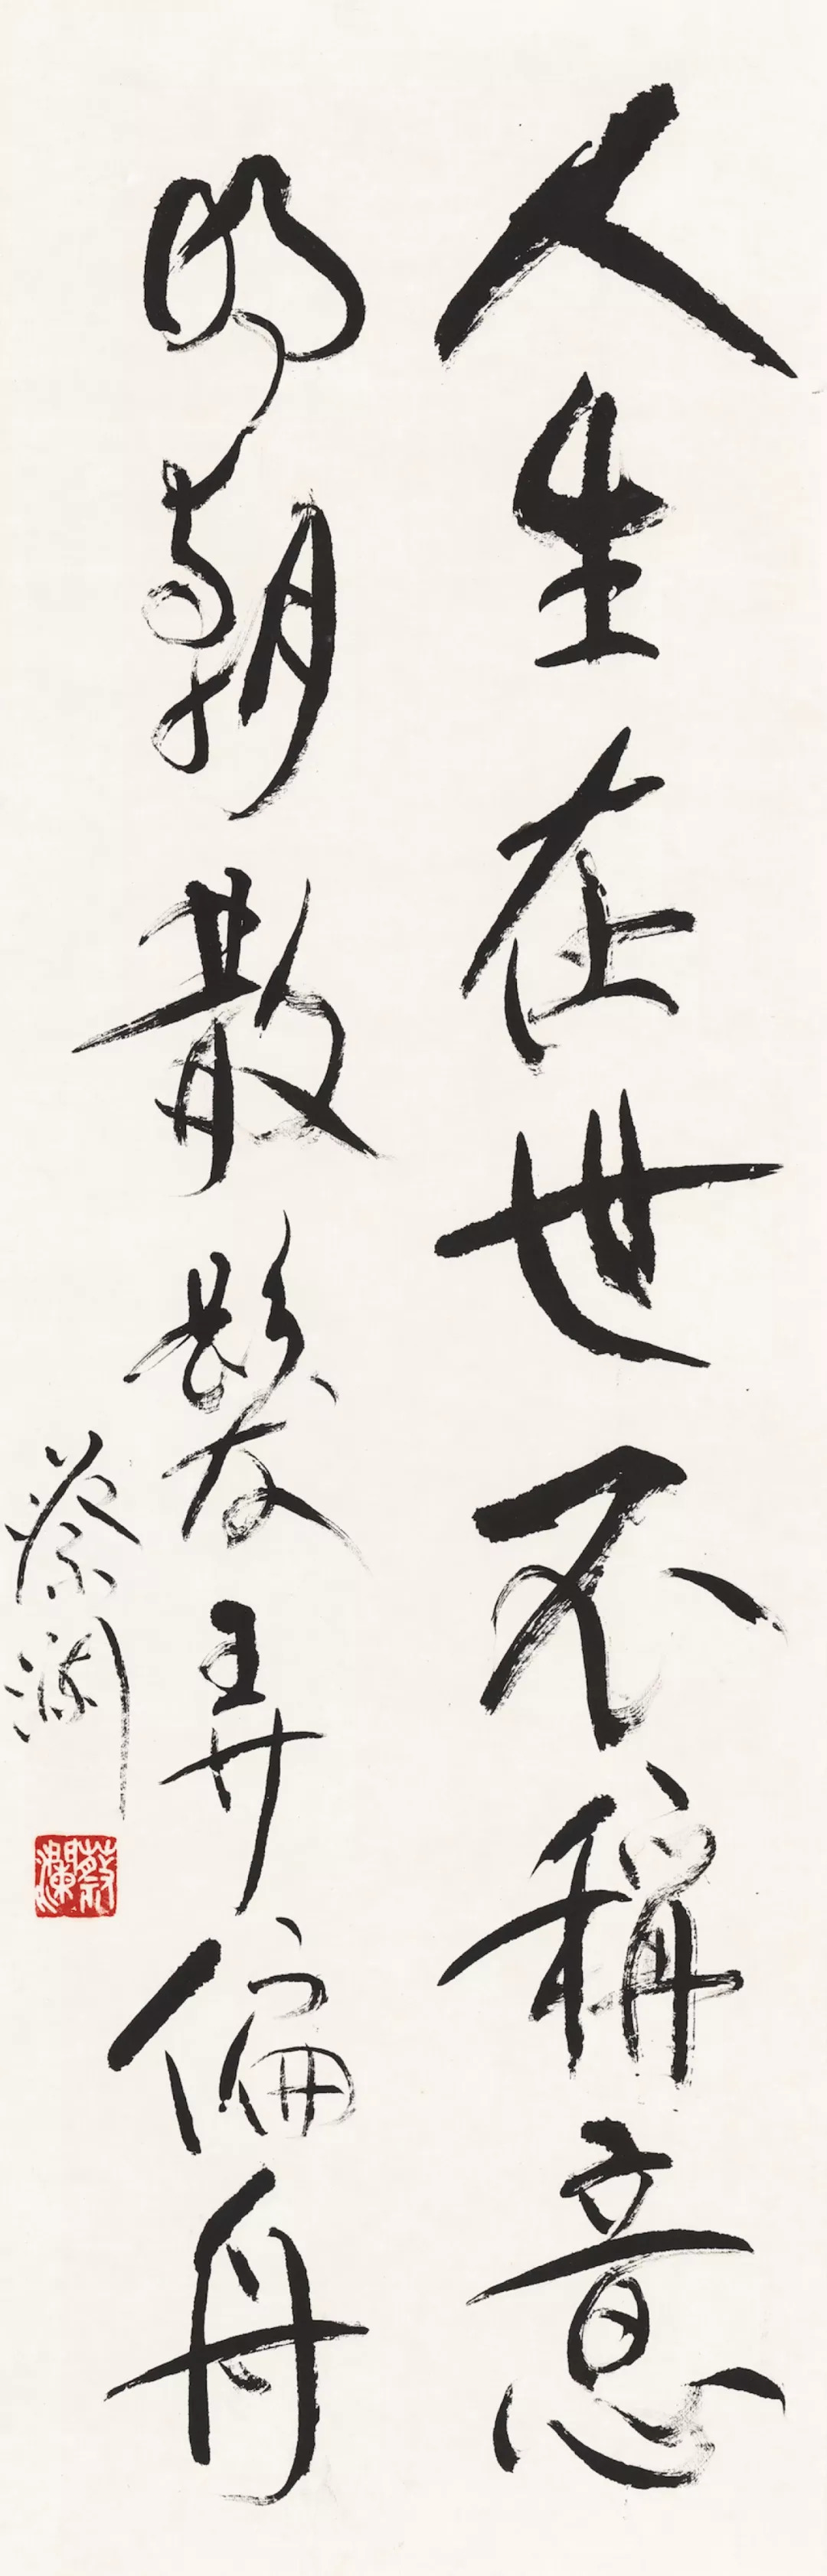 人生在世不稱意
明朝散髮弄偏舟
蔡瀾
蔡瀾